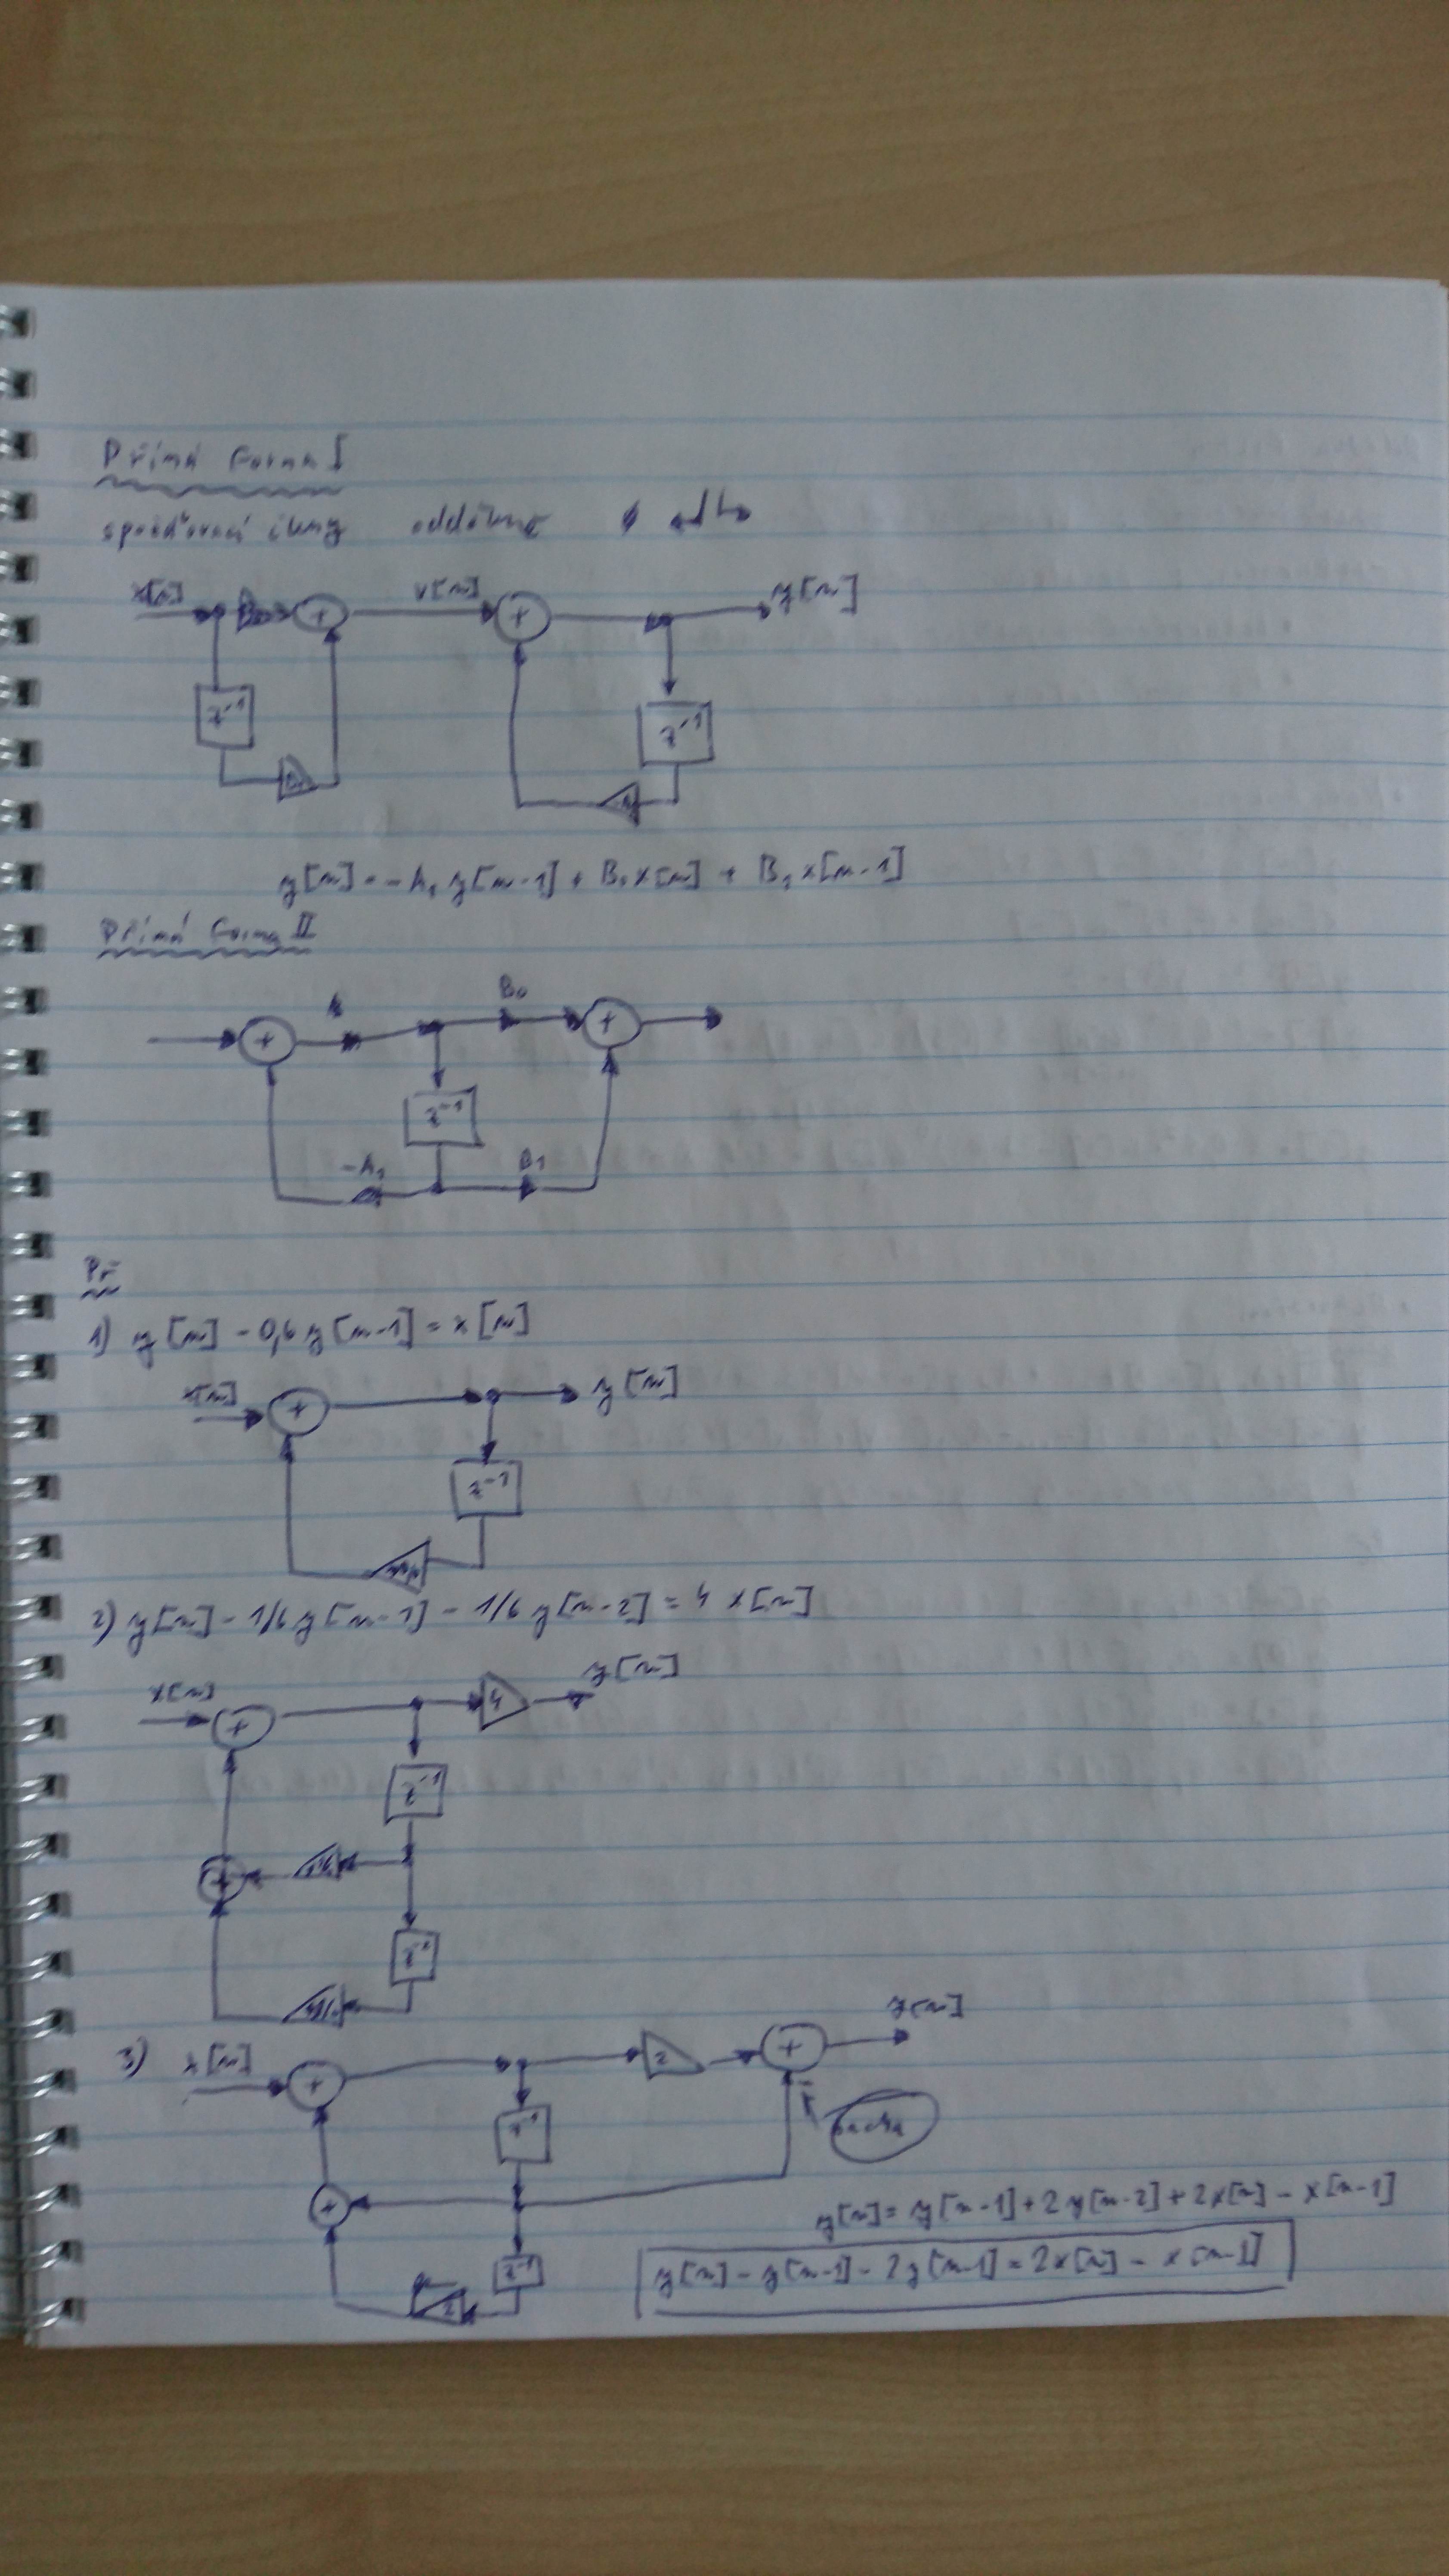 Přímá forma I
zpožďovací členy odděleně
x[n] B₀ + v[n] + y[n]
z⁻¹ z⁻¹
B₁
y[n] = -A₁ y[n-1] + B₀ x[n] + B₁ x[n-1]
Přímá forma II
B₀
+ +
z⁻¹
-A₁ B1
Př
1) y[n] - 0,6 y[n-1] = x[n]
x[n] + y[n]
z⁻¹
2) y[n] - 1/6 y[n-1] - 1/6 y[n-2] = 4 x[n]
x[n] + 4 y[n]
z⁻¹
+ 1/6
1/6
3) x[n] + 2 + y[n]
z⁻¹ -
+
y[n] = y[n-1] + 2y[n-2] + 2x[n] - x[n-1]
z⁻¹
y[n] - y[n-1] - 2y[n-1] = 2x[n] - x[n-1]
2